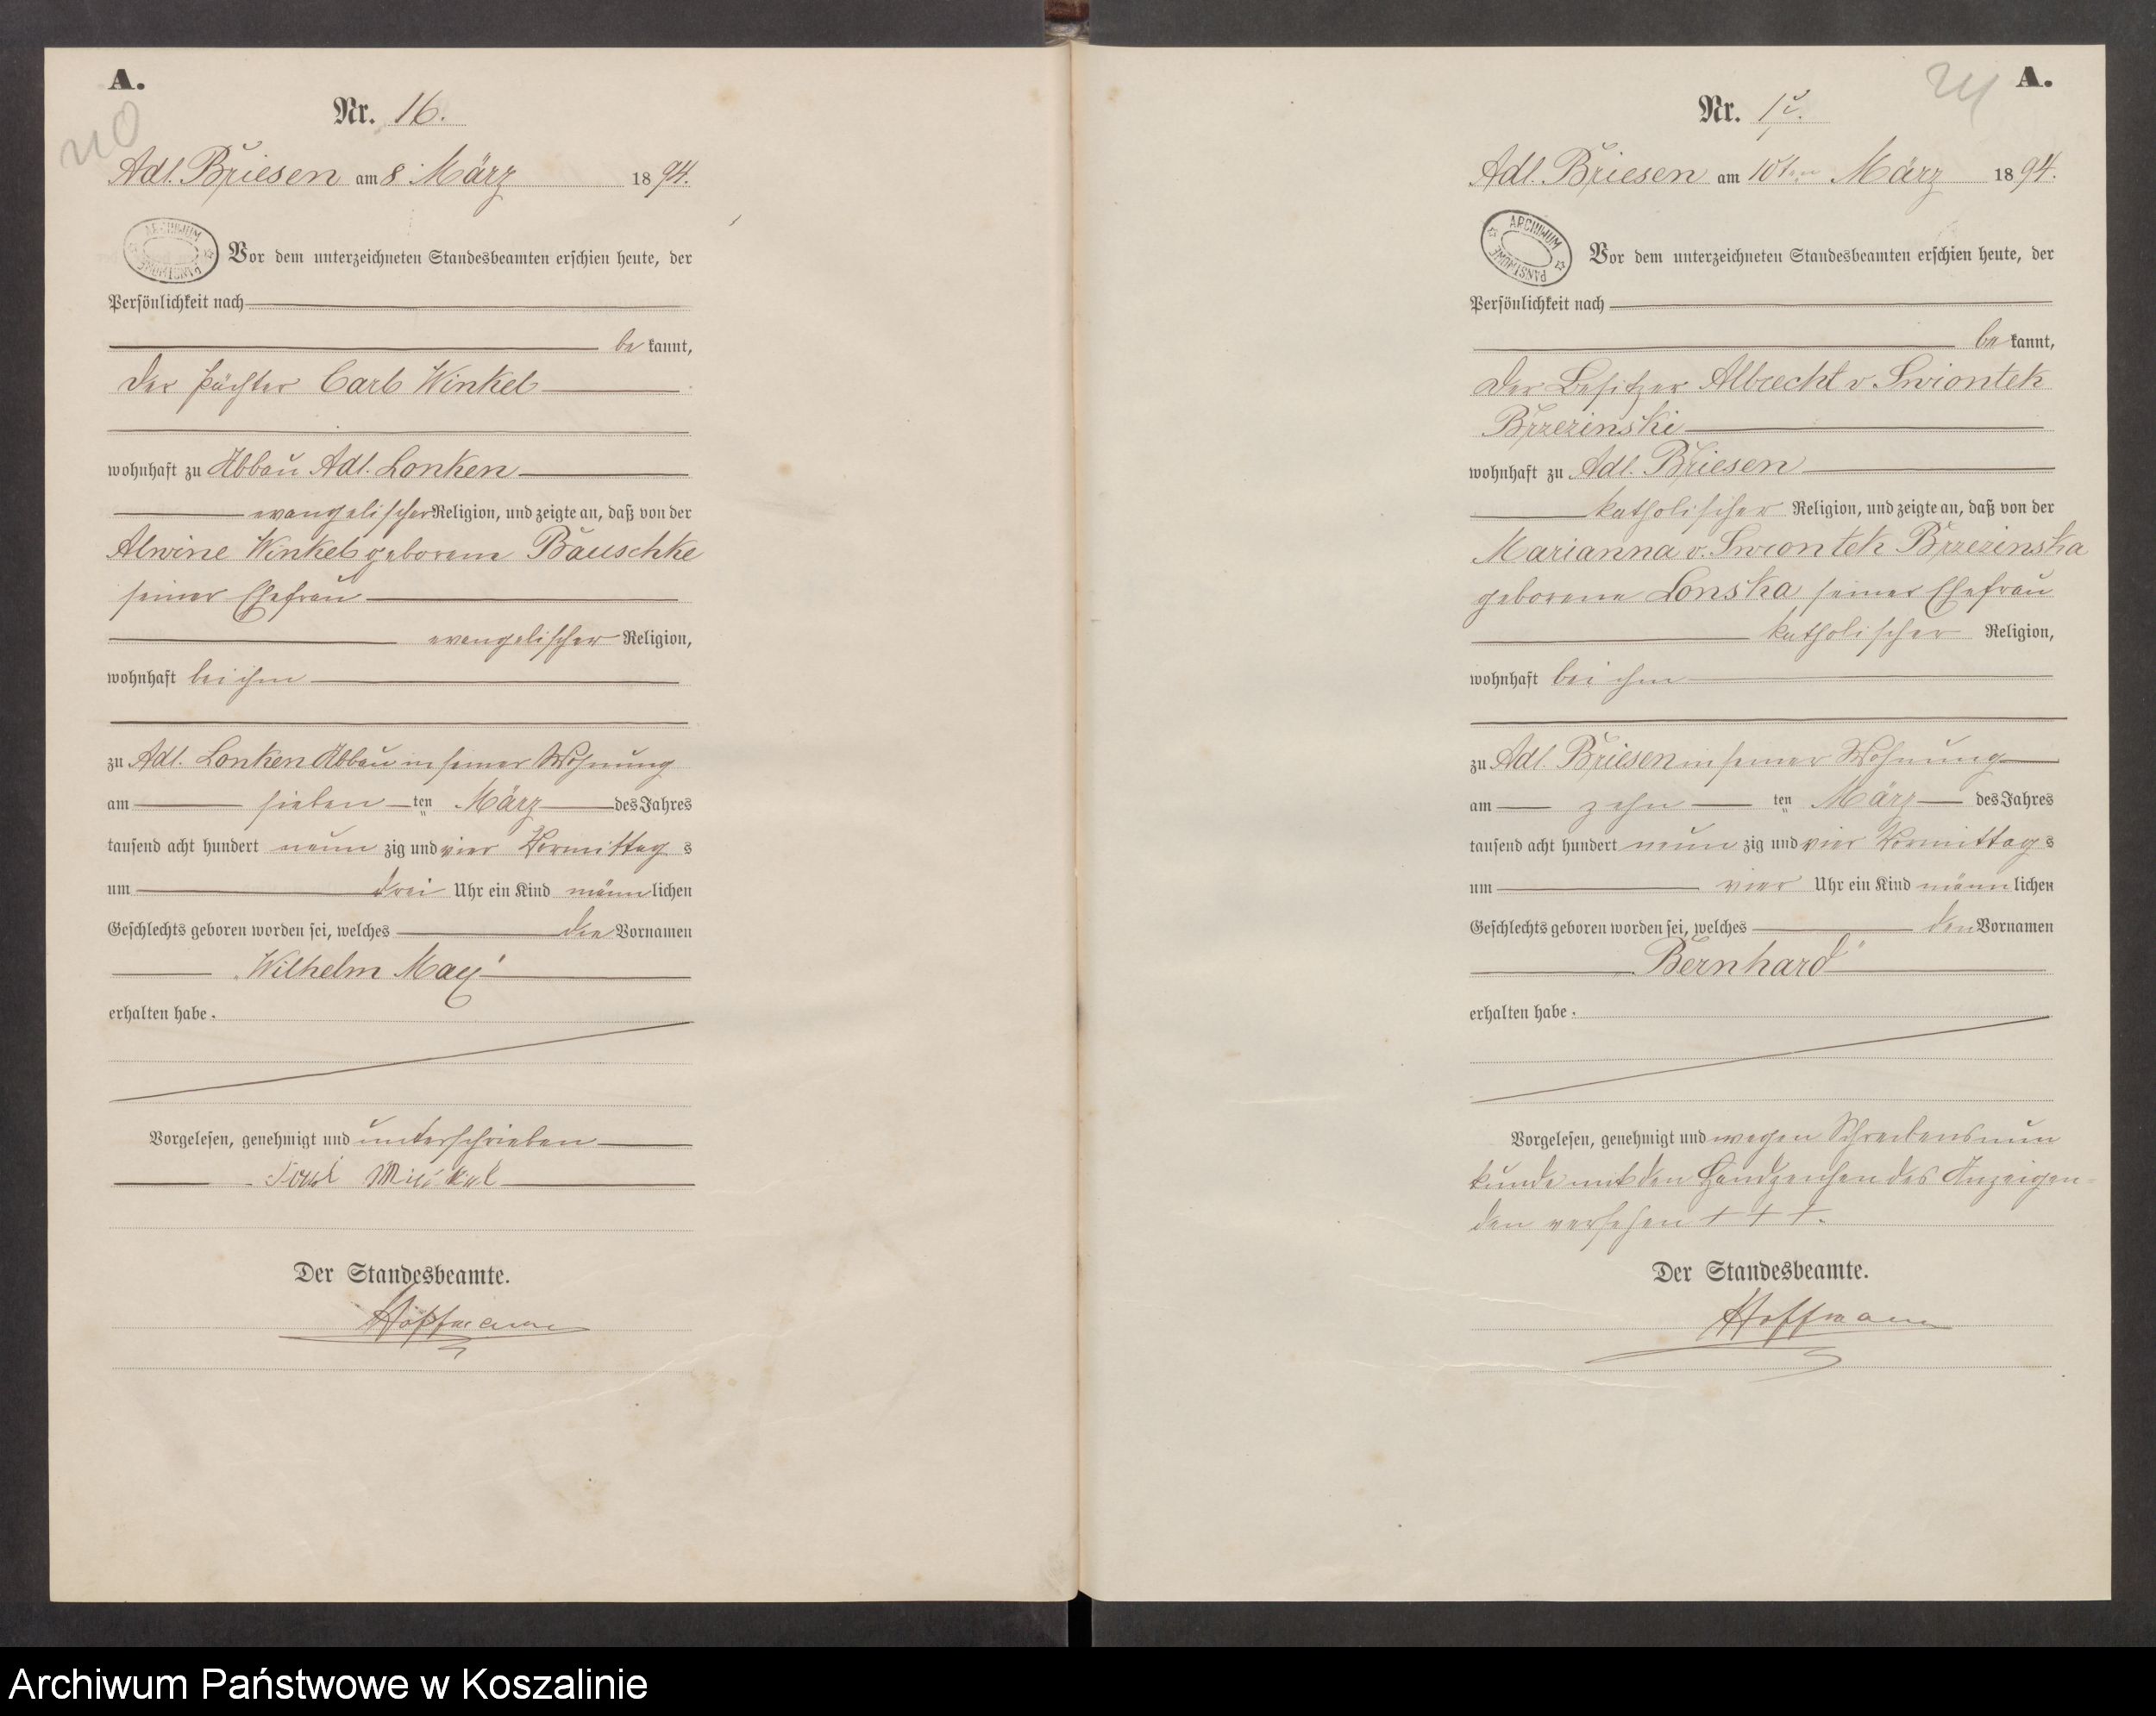 A.
Nr. 16.
Adl. Briesen am 8 März 1894.
ARCHIWUM PAŃSTWOWE
Vor dem unterzeichneten Standesbeamten erschien heute, der
Persönlichkeit nach
be kannt,
der Pächter Carl Winkel
wohnhaft zu Abbau Adl. Lonken
evangelischer Religion, und zeigte an, daß von der
Alwine Winkel geborene Bauschke
seiner Ehefrau
evangelischer Religion,
wohnhaft bei ihm
zu Adl. Lonken Abbau in seiner Wohnung
am sieben ten März des Jahres
tausend acht hundert neun zig und vier Vormittag s
um drei Uhr ein Kind männ lichen
Geschlechts geboren worden sei, welches die Vornamen
„Wilhelm Max“
erhalten habe.
Vorgelesen, genehmigt und unterschrieben
Der Standesbeamte.
Hoffmann
A.
Nr. 17.
Adl. Briesen am 10ten März 1894.
ARCHIWUM PAŃSTWOWE
Vor dem unterzeichneten Standesbeamten erschien heute, der
Persönlichkeit nach
be kannt,
der Besitzer Albrecht v. Swiontek
Brzezinski
wohnhaft zu Adl. Briesen
katholischer Religion, und zeigte an, daß von der
Marianna v. Swiontek Brzezinska
geborene Lonska seiner Ehefrau
katholischer Religion,
wohnhaft bei ihm
zu Adl. Briesen in seiner Wohnung
am zehn ten März des Jahres
tausend acht hundert neun zig und vier Vormittag s
um vier Uhr ein Kind männ lichen
Geschlechts geboren worden sei, welches den Vornamen
„Bernhard“
erhalten habe.
Vorgelesen, genehmigt und wegen Schreibensun
kunde mit den Handzeichen des Anzeigen-
den versehen + + +.
Der Standesbeamte.
Hoffmann
Archiwum Państwowe w Koszalinie